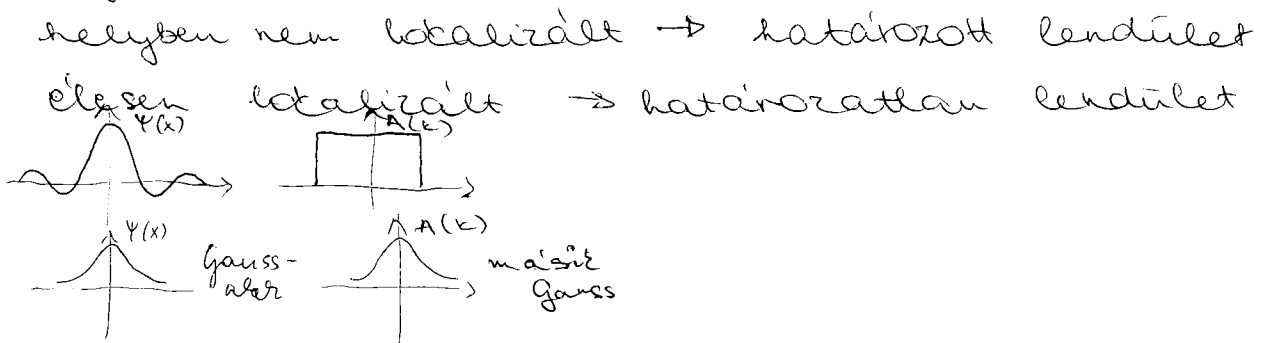 helyben nem lokalizált → határozott lendület
élesen lokalizált → határozatlan lendület
Ψ(x) A(k)
Ψ(x) Gauss- A(k) másik
alak Gauss